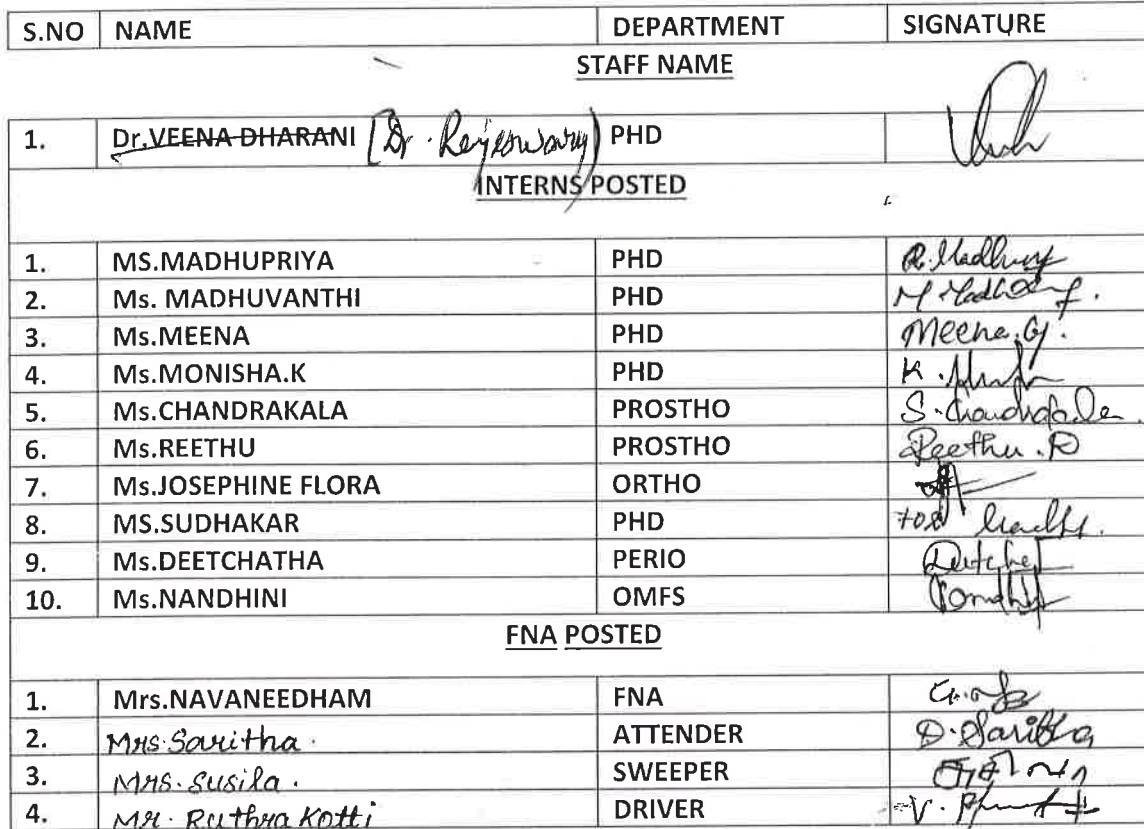 S.NO NAME DEPARTMENT SIGNATURE
STAFF NAME
1. Dr.VEENA DHARANI [Dr. Rajeswary) PHD
INTERNS POSTED
1. MS.MADHUPRIYA PHD
2. Ms. MADHUVANTHI PHD
3. Ms.MEENA PHD Meena.G.
4. Ms.MONISHA.K PHD K.
5. Ms.CHANDRAKALA PROSTHO
6. Ms.REETHU PROSTHO Reethu.R
7. Ms.JOSEPHINE FLORA ORTHO
8. MS.SUDHAKAR PHD
9. Ms.DEETCHATHA PERIO
10. Ms.NANDHINI OMFS
FNA POSTED
1. Mrs.NAVANEEDHAM FNA
2. Mrs.Saritha. ATTENDER D.Saritha
3. Mrs.Susila. SWEEPER
4. Mr. Ruthra Kotti DRIVER